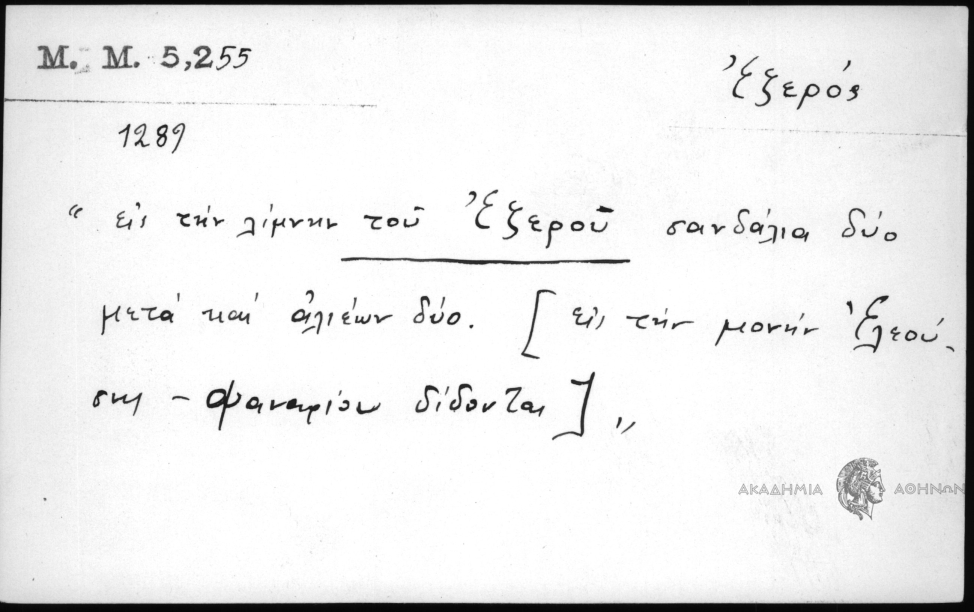 Μ. Μ. 5,255
Ἐξερός
1289
“ εἰς τὴν λίμνην τοῦ Ἐξεροῦ σανδάλια δύο
μετὰ καὶ ἁλιέων δύο. [ εἰς τὴν μονὴν Ἐλεού-
σης – Φαναρίου δίδονται ] „
ΑΚΑΔΗΜΙΑ ΑΘΗΝΩΝ